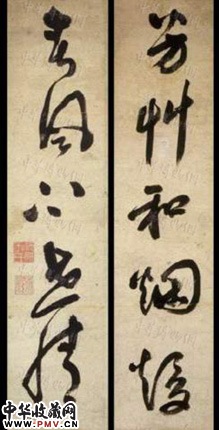 芳艸和烟暖
春風不世情
中华收藏网
www.PMV.CN